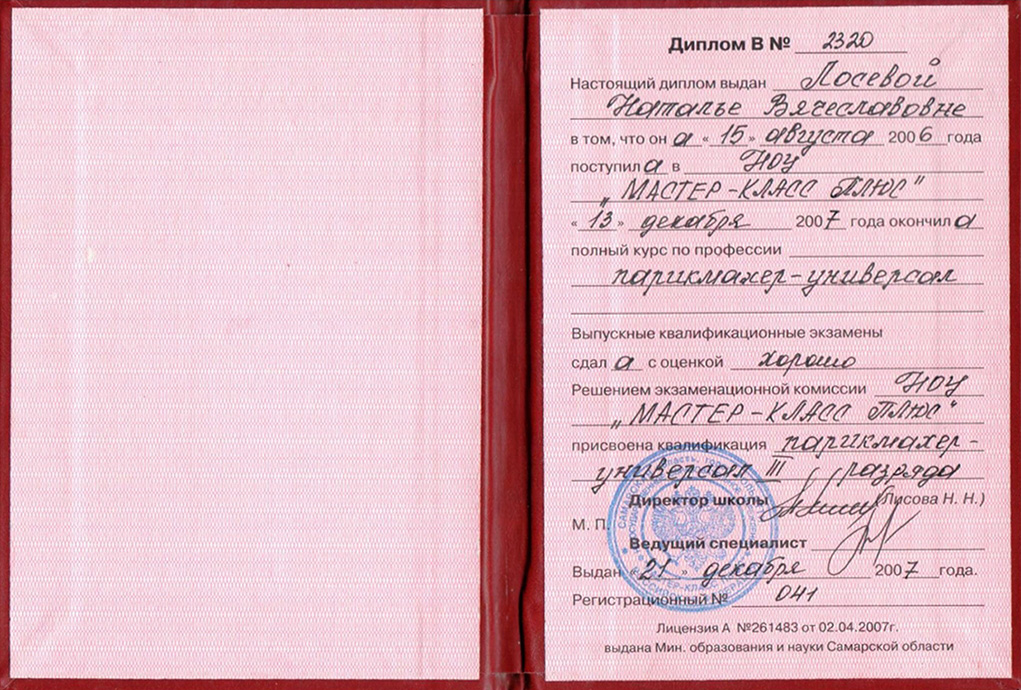 Диплом В № 2320
Настоящий диплом выдан Лосевой
Наталье Вячеславовне
в том, что он а « 15 » августа 2006 года
поступил а в НОУ
„МАСТЕР-КЛАСС ПЛЮС"
« 13 » декабря 2007 года окончил а
полный курс по профессии
парикмахер-универсал
Выпускные квалификационные экзамены
сдал а с оценкой хорошо
Решением экзаменационной комиссии НОУ
„МАСТЕР-КЛАСС ПЛЮС"
присвоена квалификация парикмахер-
универсал III разряда
Директор школы (Лисова Н. Н.)
М. П.
Ведущий специалист
Выдан 21 » декабря 2007 года.
Регистрационный № 041
Лицензия А №261483 от 02.04.2007г.
выдана Мин. образования и науки Самарской области